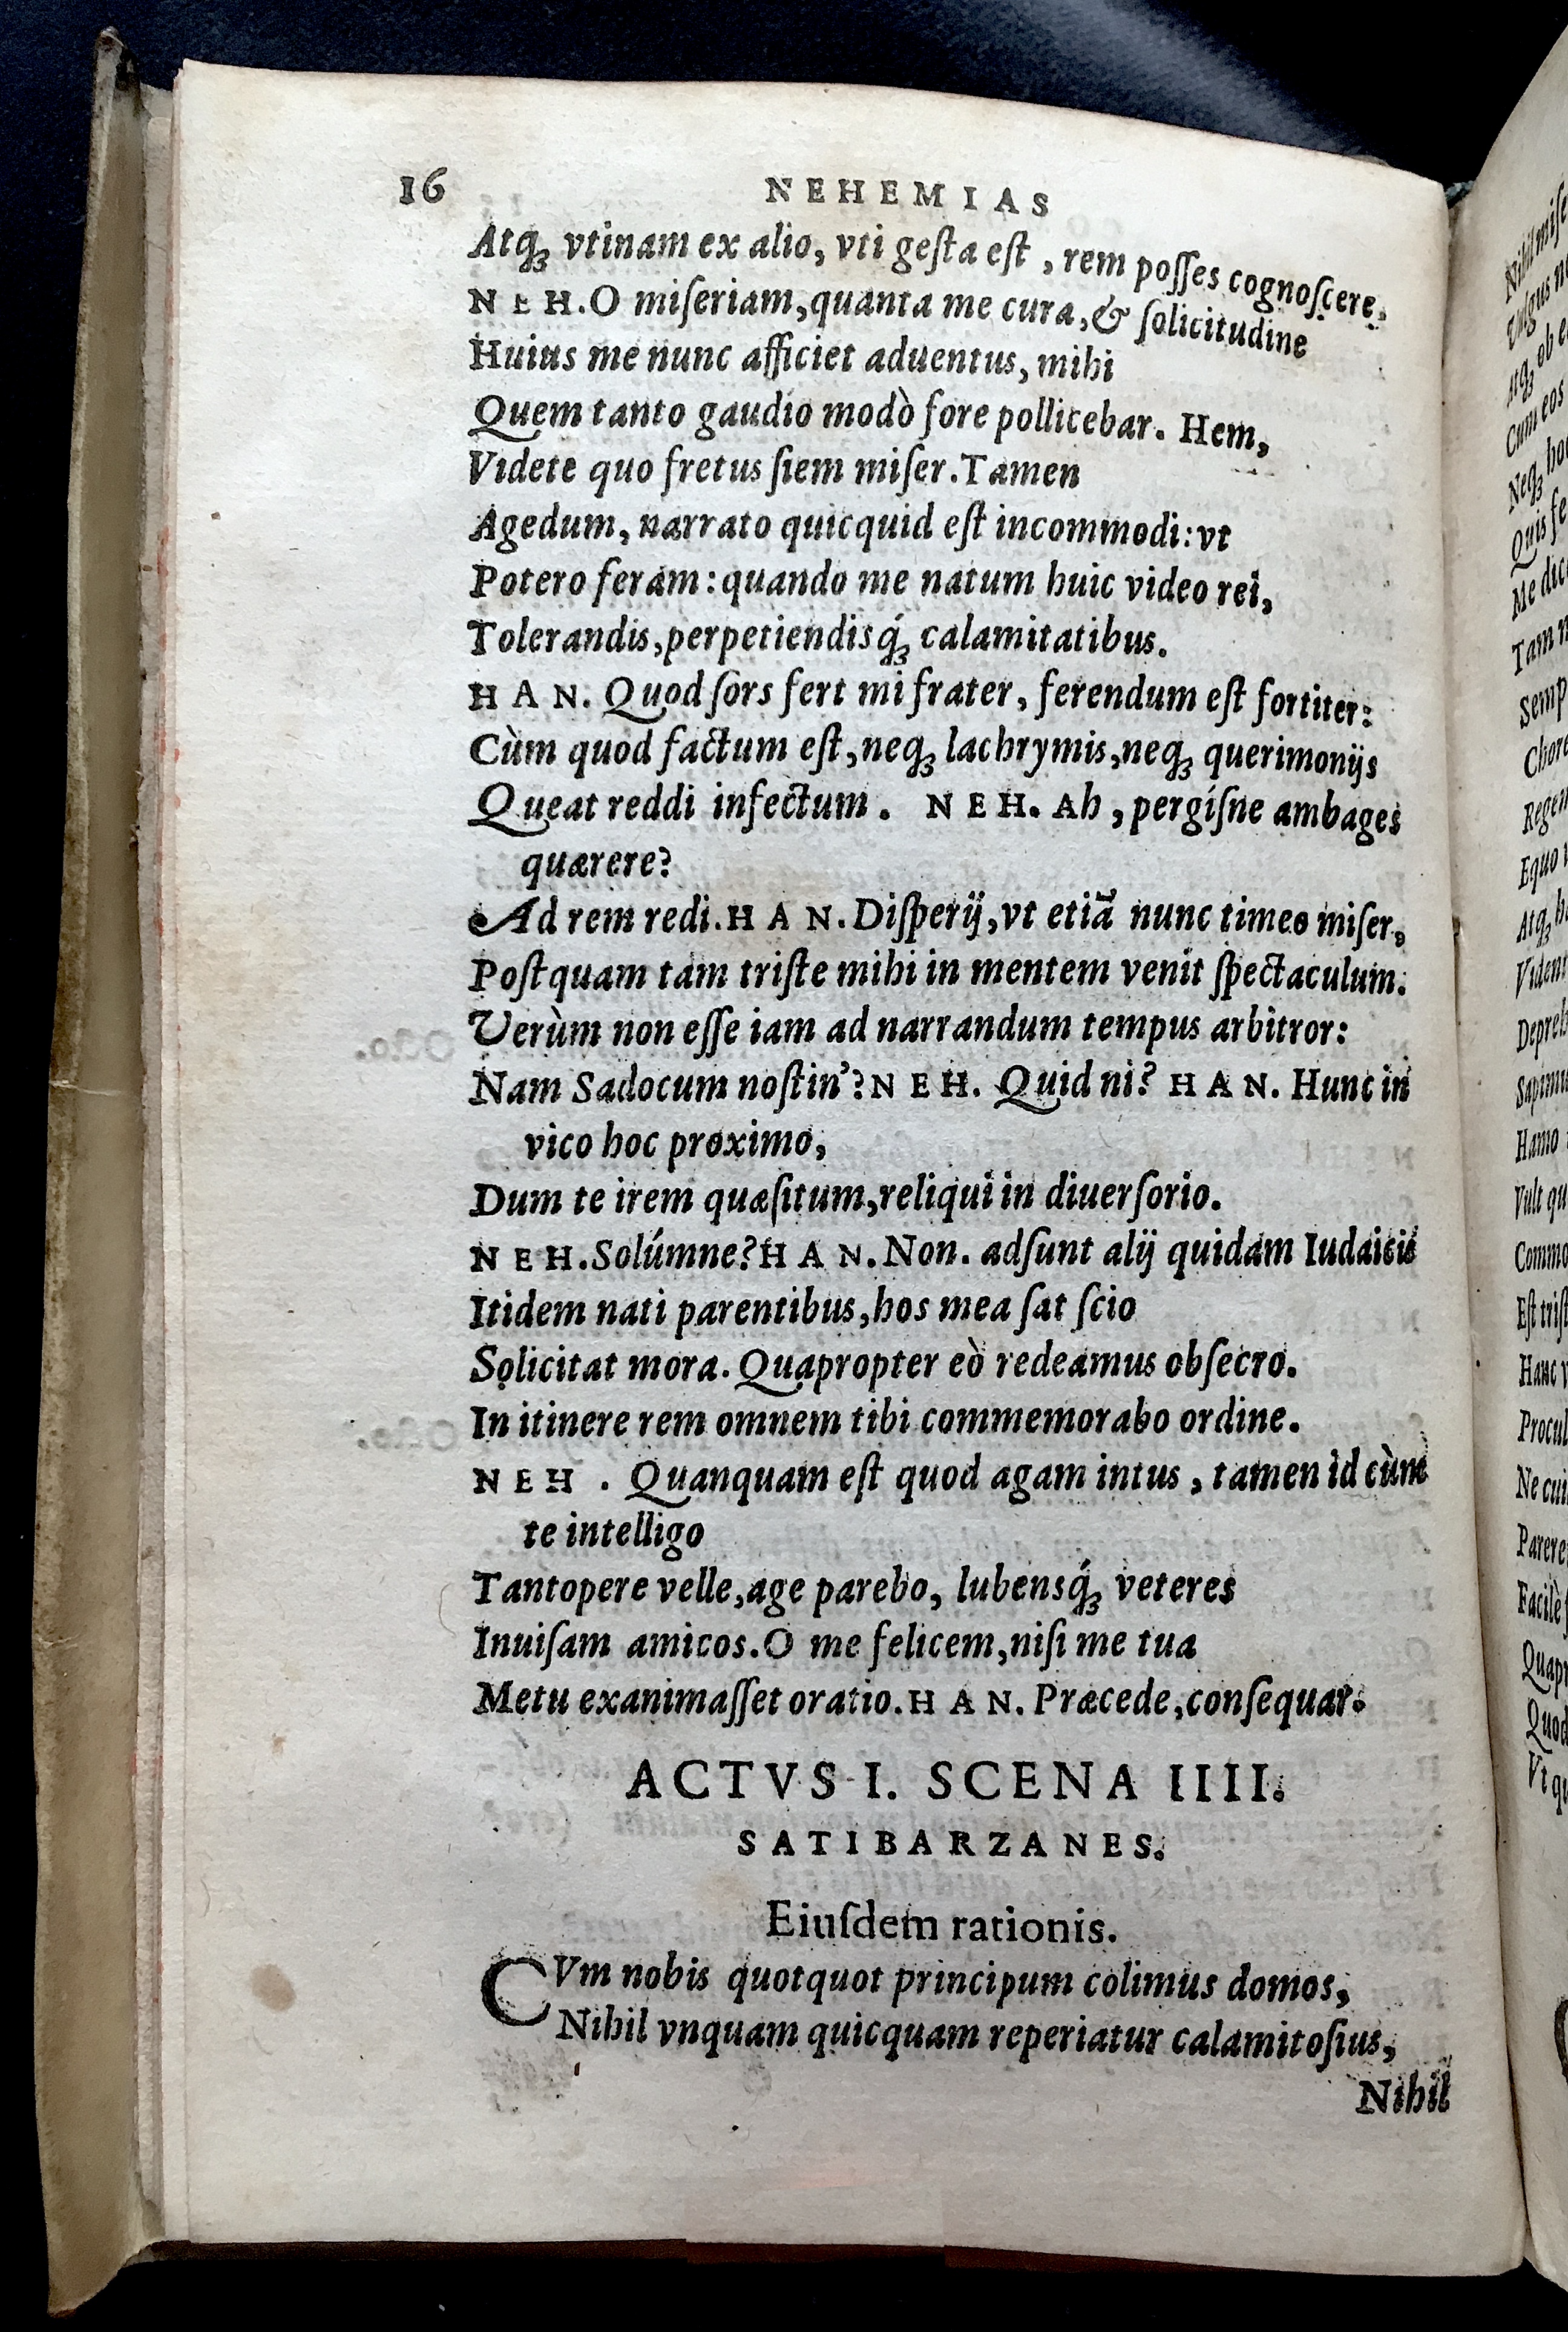 16 NEHEMIAS
Atq́ꝫ vtinam ex alio, vti geſta est, rem poſſes cognoſcere.
NEH. O miſeriam, quanta me cura, & ſolicitudine
Huius me nunc afficiet aduentus, mihi
Quem tanto gaudio modò fore pollicebar. Hem,
Videte quo fretus ſiem miſer. Tamen
Agedum, narrato quicquid eſt incommodi: vt
Potero feram: quando me natum huic video rei,
Tolerandis, perpetiendisq́ꝫ calamitatibus.
HAN. Quod ſors fert mi frater, ferendum eſt fortiter:
Cùm quod factum eſt, neqꝫ lachrymis, neqꝫ querimonijs
Queat reddi infectum. NEH. Ah, pergíſne ambages
quærere?
Ad rem redi. HAN. Diſperij, vt etiã nunc timeo miſer,
Poſtquam tam triſte mihi in mentem venit ſpectaculum.
Verùm non eſſe iam ad narrandum tempus arbitror:
Nam Sadocum noſtin'? NEH. Quid ni? HAN. Hunc in
vico hoc proximo,
Dum te irem quæſitum, reliqui in diuerſorio.
NEH. Solúmne? HAN. Non. adſunt alij quidam Iudaicis
Itidem nati parentibus, hos mea ſat ſcio
Solicitat mora. Quapropter eò redeamus obſecro.
In itinere rem omnem tibi commemorabo ordine.
NEH. Quanquam eſt quod agam intus, tamen id cùm
te intelligo
Tantopere velle, age parebo, lubensq́ꝫ veteres
Inuiſam amicos. O me felicem, niſi me tua
Metu exanimaſſet oratio. HAN. Præcede, conſequar.
ACTVS I. SCENA IIII.
SATIBARZANES.
Eiuſdem rationis.
CVm nobis quotquot principum colimus domos,
Nihil vnquam quicquam reperiatur calamitoſius,
Nihil